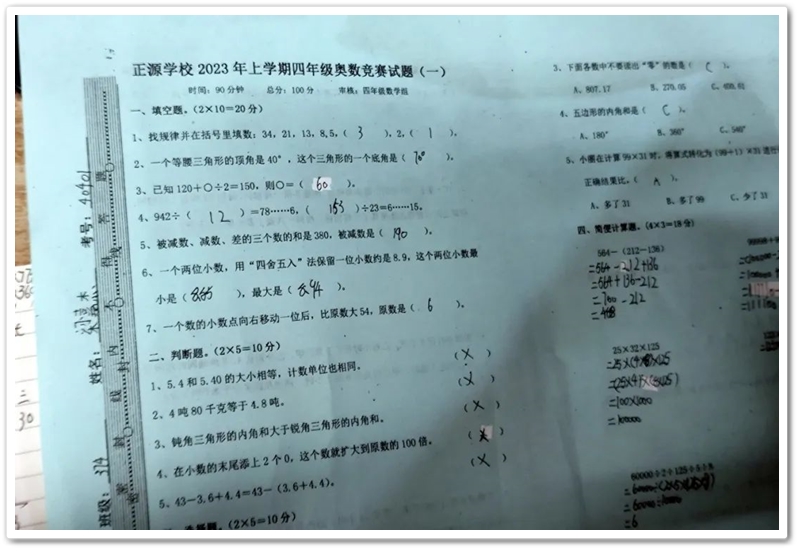 正源学校 2023 年上学期四年级奥数竞赛试题（一）
时间：90 分钟 总分：100 分 审核：四年级数学组
一、填空题。（2×10=20 分）
1、找规律并在括号里填数：34，21，13，8，5，（ 3 ），2，（ 1 ）。
2、一个等腰三角形的顶角是 40°，这个三角形的一个底角是（ 70° ）。
3、已知 120＋〇÷2=150，则〇=（ 60 ）。
4、942÷（ 12 ）=78……6，（ 153 ）÷23=6……15。
5、被减数、减数、差的三个数的和是 380，被减数是（ 190 ）。
6、一个两位小数，用“四舍五入”法保留一位小数约是 8.9，这个两位小数最
小是（ 8.85 ），最大是（ 8.94 ）。
7、一个数的小数点向右移动一位后，比原数大 54，原数是（ 6 ）。
二、判断题。（2×5=10 分）
1、5.4 和 5.40 的大小相等，计数单位也相同。 （ × ）
2、4 吨 80 千克等于 4.8 吨。 （ × ）
3、钝角三角形的内角和大于锐角三角形的内角和。 （ × ）
4、在小数的末尾添上 2 个 0，这个数就扩大到原数的 100 倍。 （ × ）
5、43－3.6＋4.4=43－（3.6＋4.4）。 （ × ）
（2×5=10 分）
3、下面各数中不要读出“零”的数是（ C ）。
A、807.17 B、270.05
4、五边形的内角和是（ C ）。
A、180° B、360° C、540°
5、小熊在计算 99×31 时，将算式转化为（99＋1）×31 进行
正确结果比，（ A ）。
A、多了 31 B、多了 99 C、少了 31
四、简便计算题。（4×3=18 分）
564－（212－136）
=564－212+136
=564+136-212
=700-212
=488
25×32×125
=100×1000
=100000
60000÷2÷125÷5÷8
=6
考号：40401
姓名：
班级：374
密 封 线 内 不 得 答 题